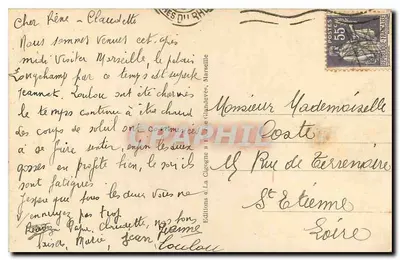 Cher Rène - Claudette
Nous sommes venues cet après
midi visiter Marseille, le palais
Longchamp par ce temps est superbe
Jeannot, Loulou ont été charmés
le temps continue à être chaud
les coups de soleil ont commencé
à se faire sentir, enfin les deux
gosses en profite bien, le soir ils
sont fatigués
J'espère que tous les deux vous ne
ennuyez pas trop
Papa, Claudette, nos bons
baisers, Marie, Jean Jeanne
Loulou
Editions « La Cigogne » Marseille
CPAPHIL
55c
POSTES
Monsieur Mademoiselle
Coste
15 Rue de Terrenoire
St Etienne
Loire